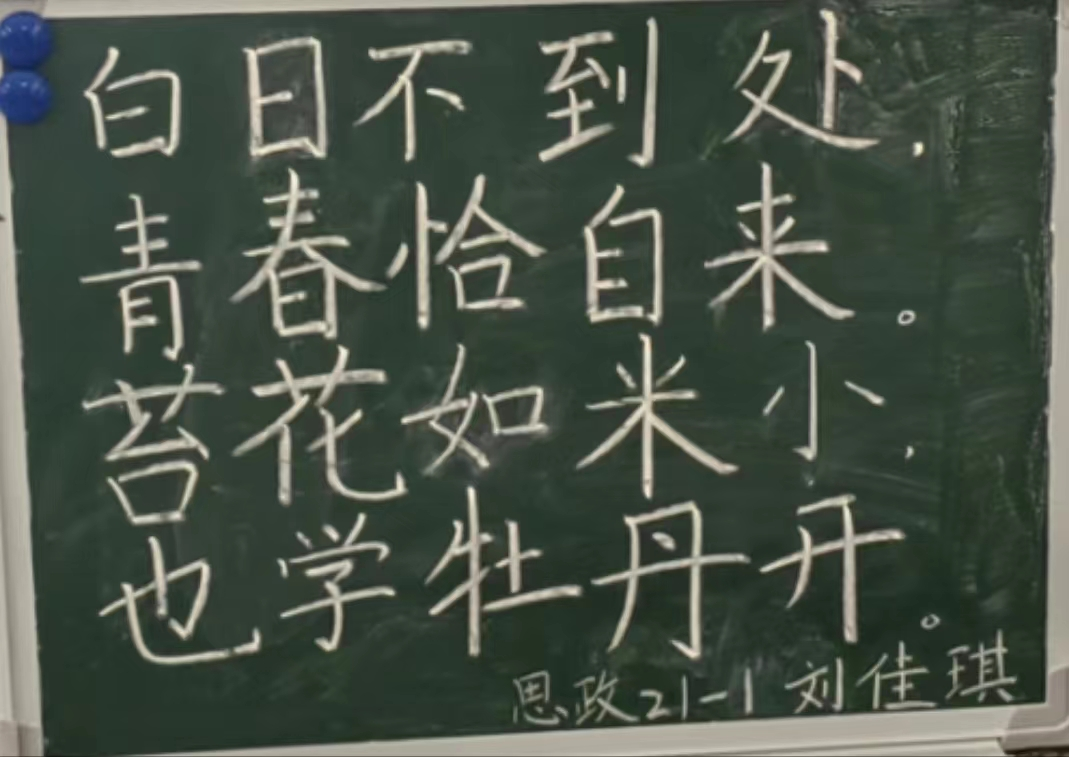 白日不到处，
青春恰自来。
苔花如米小，
也学牡丹开。
思政21-1 刘佳琪